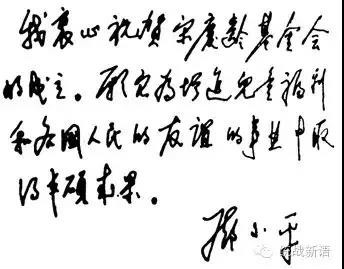 我衷心祝贺宋庆龄基金会
的成立。愿它为增进儿童福利
和各国人民的友谊的事业中取
得丰硕成果。
邓小平
统战新语